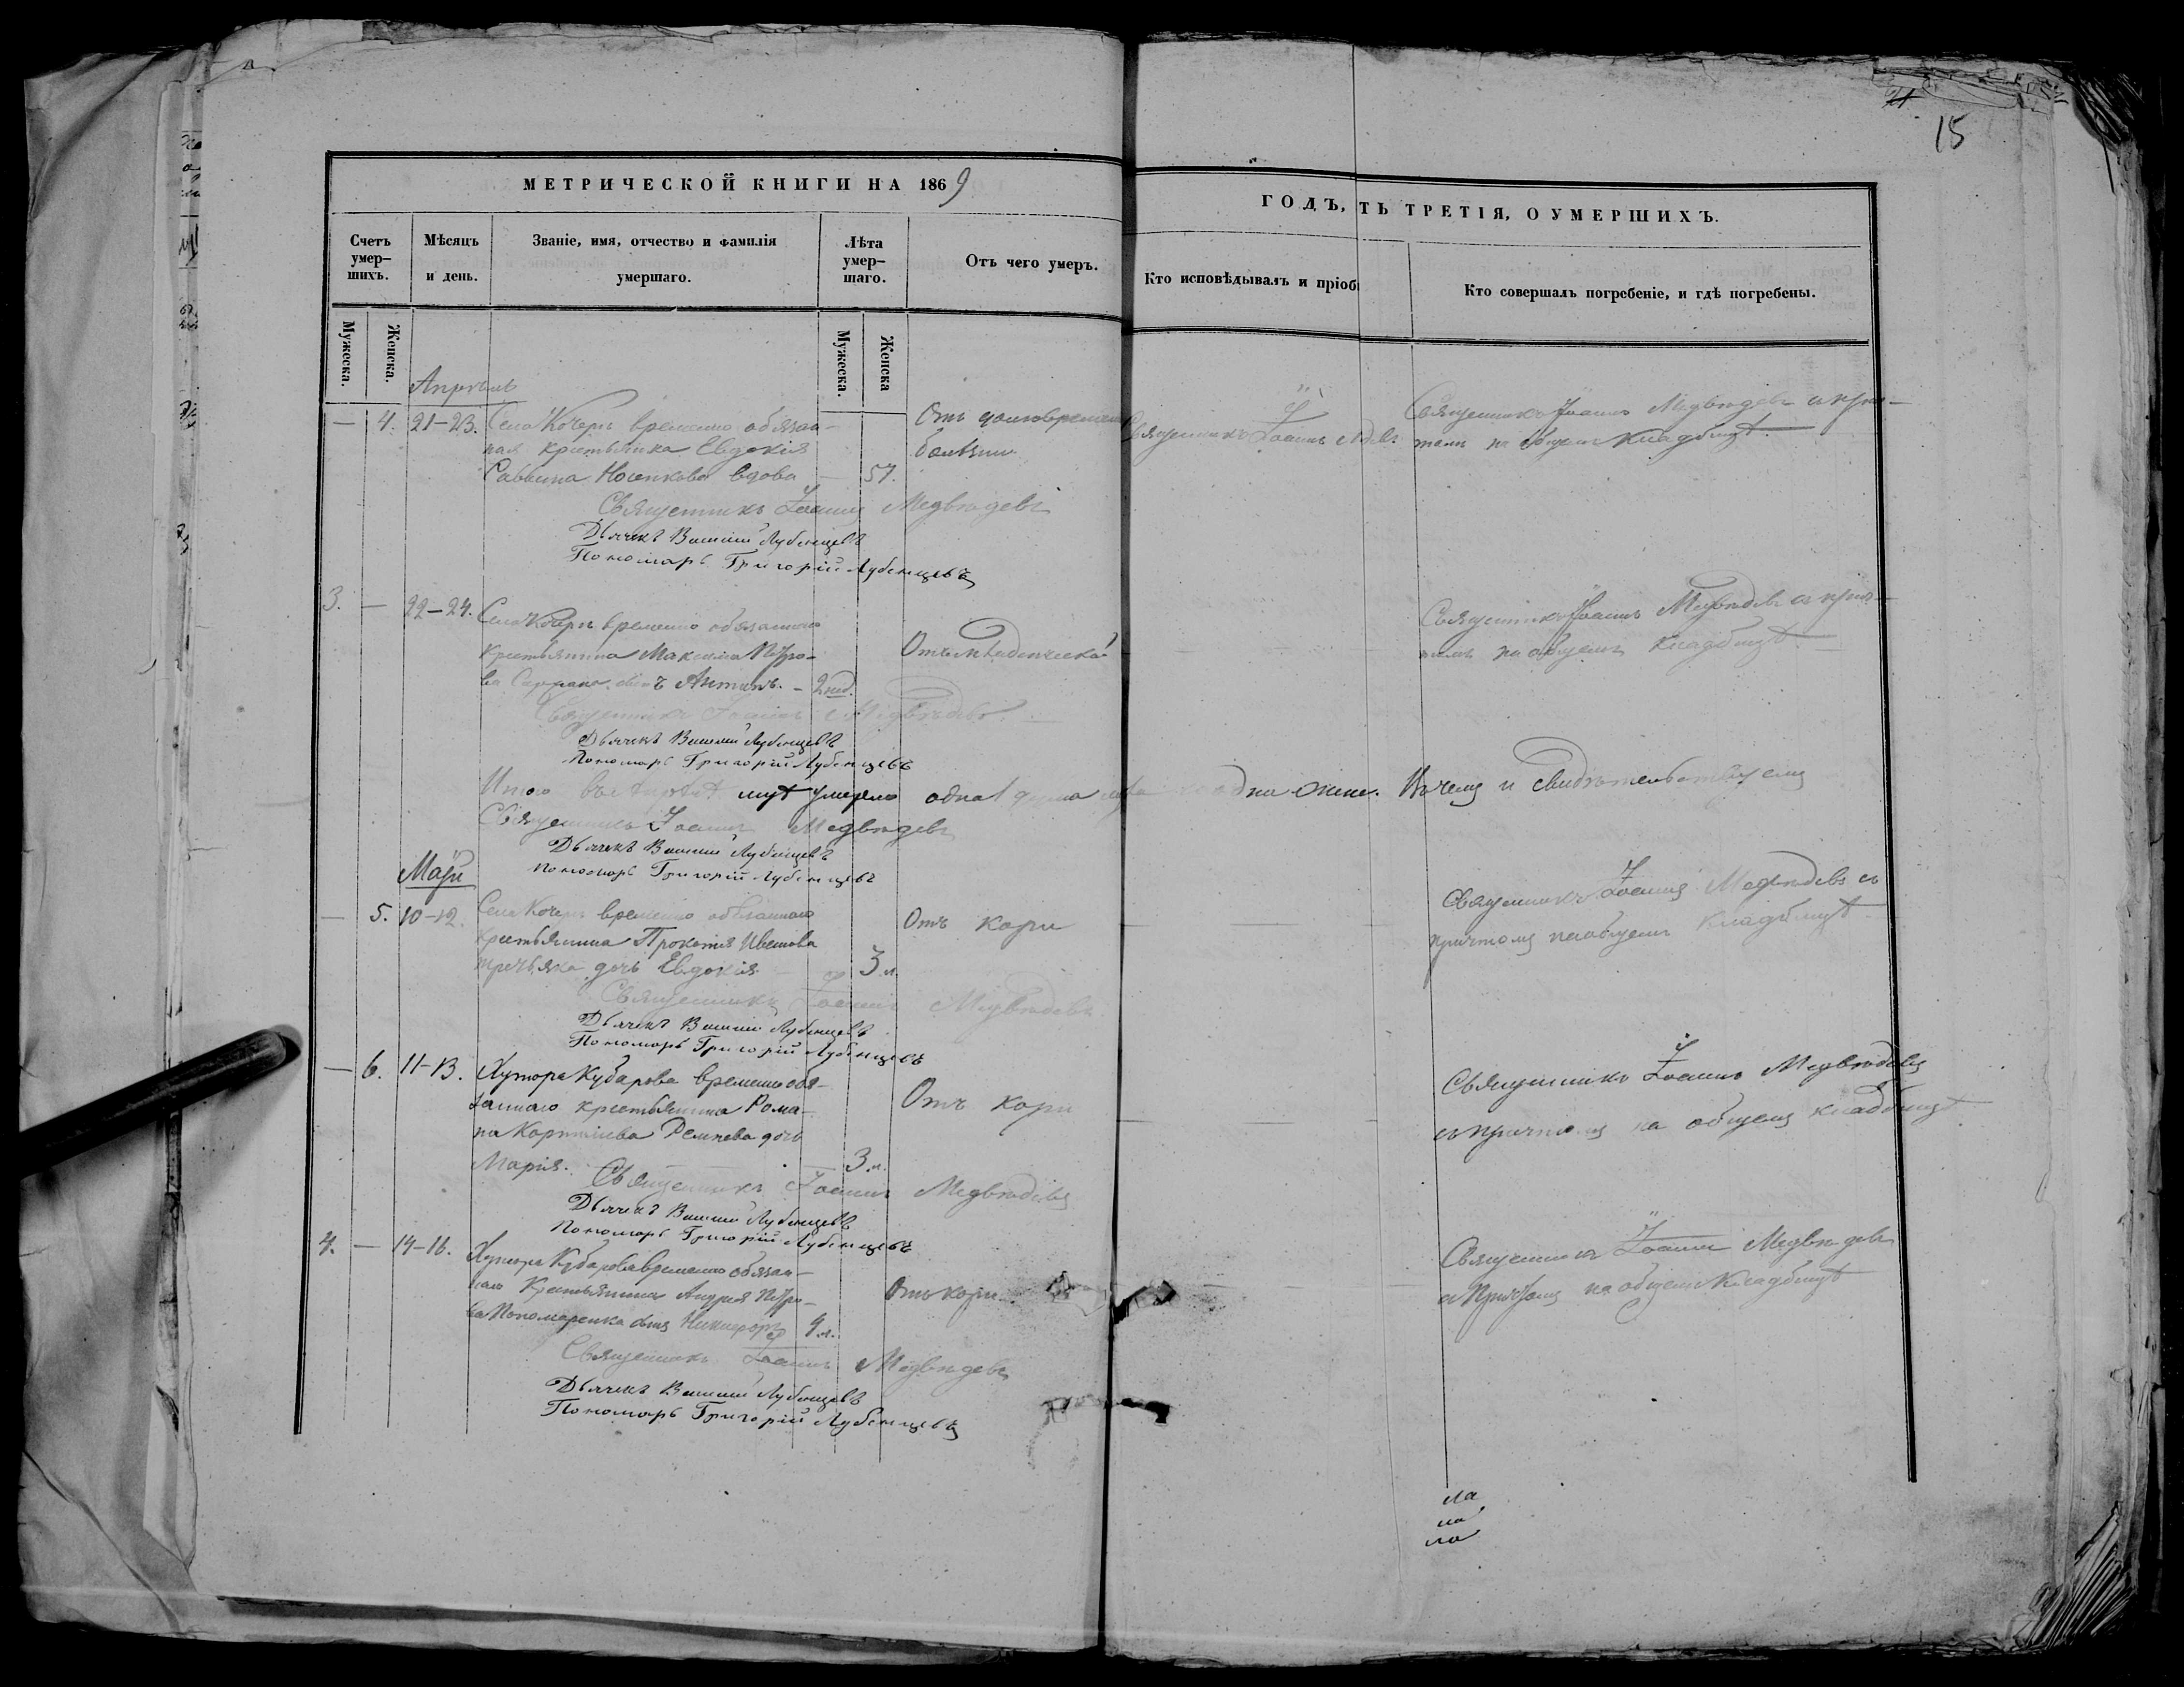 21
15
МЕТРИЧЕСКОЙ КНИГИ НА 1869
ГОДЪ, ТЬ ТРЕТІЯ, О УМЕРШИХЪ.
Счетъ умер-шихъ.
Мѣсяцъ и день.
Званіе, имя, отчество и фамилія умершаго.
Лѣта умер-шаго.
Отъ чего умеръ.
Кто исповѣдывалъ и пріоб
Кто совершалъ погребеніе, и гдѣ погребены.
Мужеска.
Женска.
Мужеска.
Женска
Апрѣль
— 4. 21–23. Села Кочерг временно обязан-
ная крестьянка Евдокія
Саввина Носенкова вдова — 57.
Отъ долговремен
болѣзни
Священникъ Іоаннъ
Священникъ Іоаннъ Медвѣдевъ с прич-
томъ на общемъ кладбищѣ
Священникъ Іоаннъ Медвѣдевъ
Дьячекъ Василій Лубенцевъ
Пономарь Григорій Лубенцевъ
3. — 22–24. Села временно обязаннаго
крестьянина Максима Петро-
ва сынъ Антипъ. – 2 нед.
Отъ младенческой
Священникъ Іоаннъ Медвѣдевъ с прич-
томъ на общемъ кладбищѣ
Священникъ Іоаннъ Медвѣдевъ
Дьячекъ Василій Лубенцевъ
Пономарь Григорій Лубенцевъ
Итого въ Апрѣлѣ умерло одна одна женс. Въ чемъ и свидѣтельствуемъ
Священникъ Іоаннъ Медвѣдевъ
Дьячекъ Василій Лубенцевъ
Пономарь Григорій Лубенцевъ
Май
— 5. 10–12. Села временно обязаннаго
крестьянина Прокопія Иванова
Третьяка дочь Евдокія – 3 л.
Отъ кори
Священникъ Іоаннъ Медвѣдевъ съ
причтомъ на общемъ кладбищѣ
Священникъ Іоаннъ Медвѣдевъ
Дьячекъ Василій Лубенцевъ
Пономарь Григорій Лубенцевъ
— 6. 11–13. Хутора Кубарова временно обя-
заннаго крестьянина Рома-
на дочь
Марія. — 3 л.
Отъ кори
Священникъ Іоаннъ Медвѣдевъ
съ причтомъ на общемъ кладбищѣ
Священникъ Іоаннъ Медвѣдевъ
Дьячекъ Василій Лубенцевъ
Пономарь Григорій Лубенцевъ
4. — 14–16. Хутора Кубарова временно обязан-
наго крестьянина Андрея Петро-
ва Пономаренка сынъ Никифоръ 4 л.
Отъ кори
Священникъ Іоаннъ Медвѣдевъ
съ причтомъ на общемъ кладбищѣ
Священникъ Іоаннъ Медвѣдевъ
Дьячекъ Василій Лубенцевъ
Пономарь Григорій Лубенцевъ